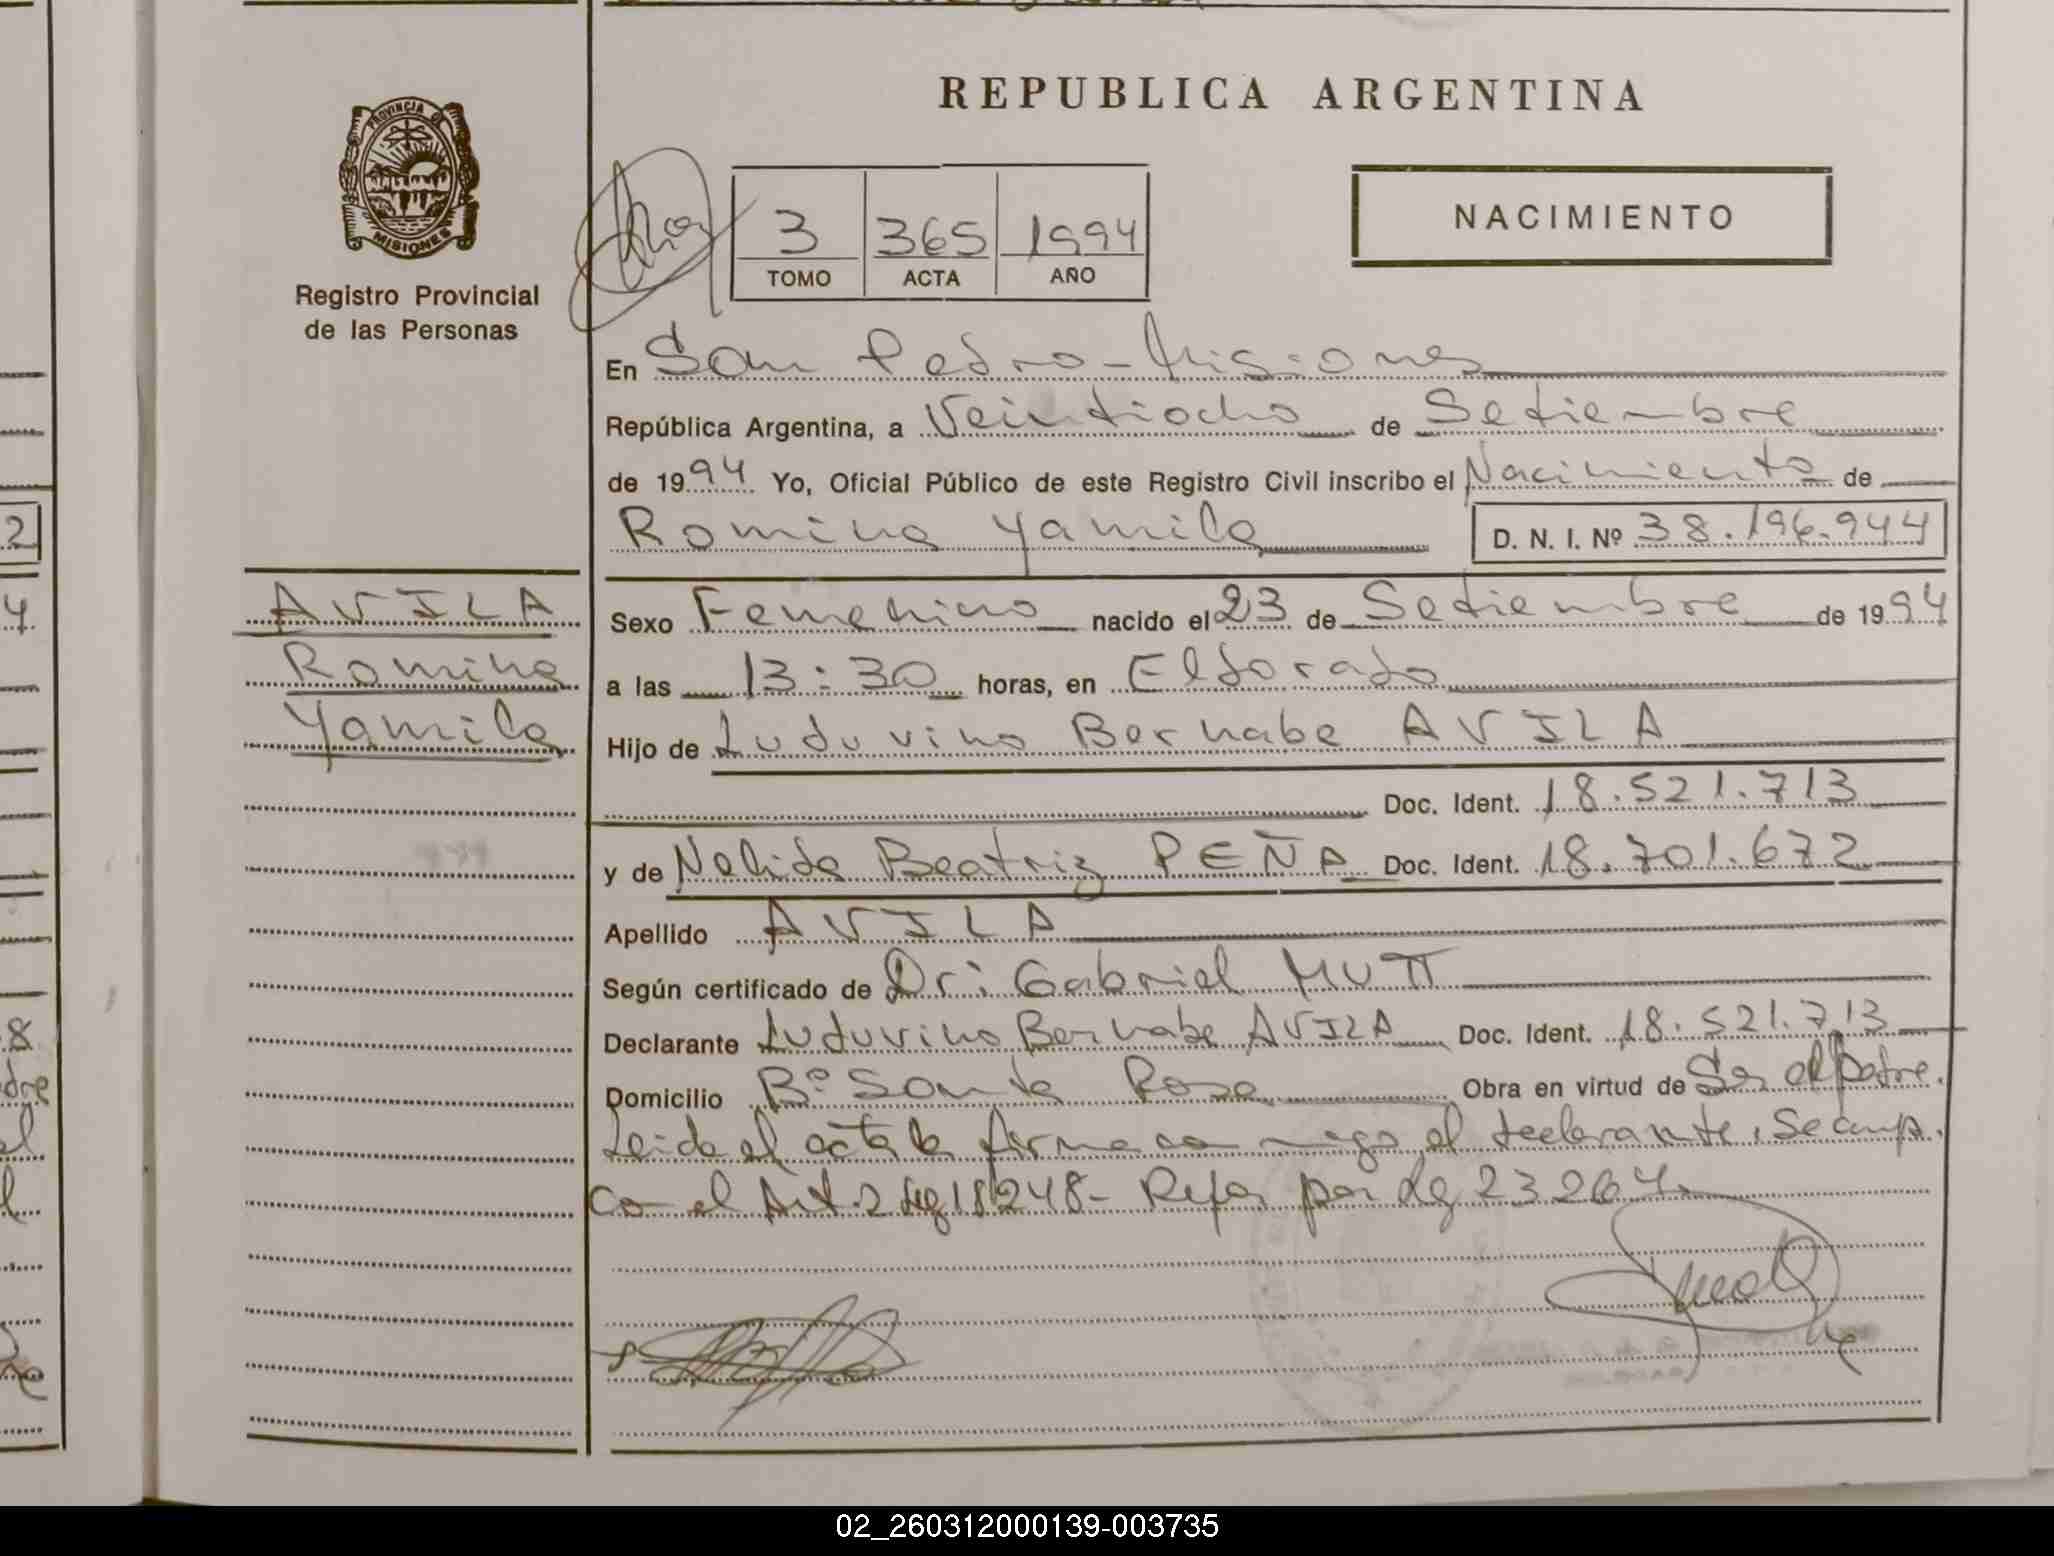 REPUBLICA ARGENTINA
PROVINCIA DE
MISIONES
Registro Provincial
de las Personas
3 365 1994
TOMO ACTA AÑO
NACIMIENTO
En San Pedro - Misiones
República Argentina, a Veintiocho de Setiembre
de 1994 Yo, Oficial Público de este Registro Civil inscribo el Nacimiento de
Romina Yamila D. N. I. Nº 38.196.944
AVILA
Romina
Yamila
Sexo Femenino nacido el 23 de Setiembre de 1994
a las 13:30 horas, en Eldorado
Hijo de Luduvino Bernabe AVILA
Doc. Ident. 18.521.713
y de Nelida Beatriz PEÑA Doc. Ident. 18.701.672
Apellido AVILA
Según certificado de Dr: Gabriel MUTT
Declarante Luduvino Bernabe AVILA Doc. Ident. 18.521.713
Domicilio Bº Santa Rosa Obra en virtud de Ser el Padre.
Leida el acta la firma con migo el declarante. Se cump.
con el Art. 2 Ley 18248- Refor por Ley 23264.
2
4
8
dre
el
02_260312000139-003735